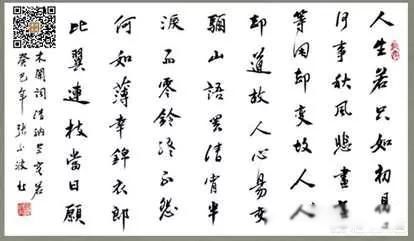 人生若只如初見
何事秋風悲畫
等閑却變故人
却道故人心易變
驪山語罷清宵半
淚雨零鈴終不怨
何如薄幸錦衣郎
比翼連枝當日願
木蘭詞 清 納兰容若
癸巳年 張小波書